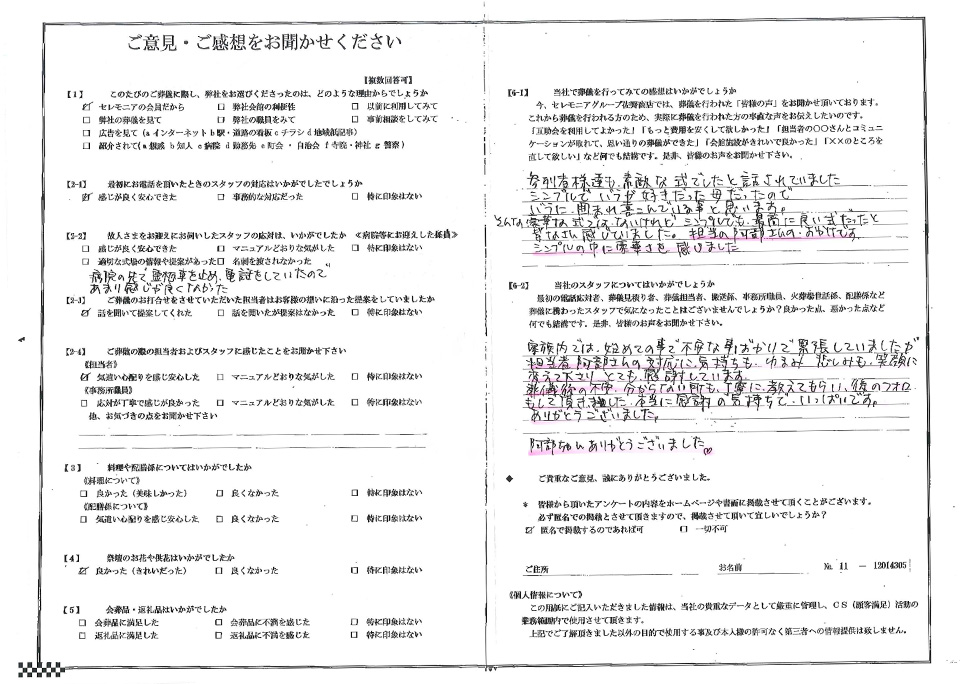 ご意見・ご感想をお聞かせください
【複数回答可】
【1】 このたびのご葬儀に際し、弊社をお選びくださったのは、どのような理由からでしょうか
☑ セレモニアの会員だから □ 弊社会館の利便性 □ 以前に利用してみて
□ 弊社の葬儀を見て □ 弊社の職員をみて □ 事前相談をしてみて
□ 広告を見て（a インターネット b 駅・道路の看板 c チラシ d 地域紙記事）
□ 紹介されて（a 親戚 b 知人 c 病院 d 勤務先 e 町会・自治会 f 寺院・神社 g 警察）
【2-1】 最初にお電話を頂いたときのスタッフの対応はいかがでしたでしょうか
☑ 感じが良く安心できた □ 事務的な対応だった □ 特に印象はない
【2-2】 故人さまをお迎えにお伺いしたスタッフの応対は、いかがでしたか 《病院等にお迎えした係員》
□ 感じが良く安心できた □ マニュアルどおりな気がした □ 特に印象はない
□ 適切な式場の情報や提案があった □ 名前を渡されなかった
病院の先で霊柩車を止め、電話をしていたので
あまり感じが良くなかった
【2-3】 ご葬儀のお打合せをさせていただいた担当者はお客様の想いに沿った提案をしていましたか
☑ 話を聞いて提案してくれた □ 話を聞いたが提案はなかった □ 特に印象はない
【2-4】 ご葬儀の際の担当者およびスタッフに感じたことをお聞かせ下さい
《担当者》
☑ 気遣い心配りを感じ安心した □ マニュアルどおりな気がした □ 特に印象はない
《事務所職員》
□ 応対が丁寧で感じが良かった □ マニュアルどおりな気がした □ 特に印象はない
他、お気づきの点をお聞かせ下さい
【3】 料理や配膳係についてはいかがでしたか
《料理について》
□ 良かった（美味しかった） □ 良くなかった □ 特に印象はない
《配膳係について》
□ 気遣い心配りを感じ安心した □ 良くなかった □ 特に印象はない
【4】 祭壇のお花や供花はいかがでしたか
☑ 良かった（きれいだった） □ 良くなかった □ 特に印象はない
【5】 会葬品・返礼品はいかがでしたか
□ 会葬品に満足した □ 会葬品に不満を感じた □ 特に印象はない
□ 返礼品に満足した □ 返礼品に不満を感じた □ 特に印象はない
【6-1】 当社で葬儀を行ってみての感想はいかがでしょうか
今、セレモニアグループ佐野商店では、葬儀を行われた「皆様の声」をお聞かせ頂いております。
これから葬儀を行われる方のため、実際に葬儀を行われた方の率直な声をお伝えしたいのです。
「互助会を利用してよかった」「もっと費用を安くして欲しかった」「担当者の○○さんとコミュニ
ケーションが取れて、思い通りの葬儀ができた」「会館施設がきれいで良かった」「××のところを
直して欲しい」など何でも結構です。是非、皆様のお声をお聞かせ下さい。
参列者様達も、素敵な式でしたと話されていました
シンプルでいつが好きだった母だったので
に、囲まれ喜こんでいる事と思います。
そんな豪華な式ではないけれど、シンプルでも、最高に良い式だったと
皆なさん感じていました。担当の阿部さんの、おかげです。
シンプルの中に豪華さを感じました
【6-2】 当社のスタッフについてはいかがでしょうか
最初の電話応対者、葬儀見積り者、葬儀担当者、搬送係、事務所職員、火葬場世話係、配膳係など
葬儀に携わったスタッフで気になったことはございませんでしょうか？良かった点、悪かった点など
何でも結構です。是非、皆様のお声をお聞かせ下さい。
家族内では、始めての事で不安な事ばかりで緊張していましたが
担当者阿部さんの対応に気持ちも、ゆるみ 悲しみも、笑顔に
変えて下さり、とても感謝しています。
葬儀後の不安、分からない所も、丁寧に、教えてもらい、後のフォロー
もして頂きました。本当に感謝の気持ちで、いっぱいです。
ありがとうございました。
阿部さんありがとうございました♡
◆ ご貴重なご意見、誠にありがとうございました。
* 皆様から頂いたアンケートの内容をホームページや書面に掲載させて頂くことがございます。
必ず匿名での掲載とさせて頂きますので、掲載させて頂いて宜しいでしょうか？
☑ 匿名で掲載するのであれば可 □ 一切不可
ご住所 お名前 № 11 － 12014305
《個人情報について》
この用紙にご記入いただきました情報は、当社の貴重なデータとして厳重に管理し、ＣＳ（顧客満足）活動の
業務範囲内で使用させて頂きます。
上記でご了解頂きました以外の目的で使用する事及び本人様の許可なく第三者への情報提供は致しません。